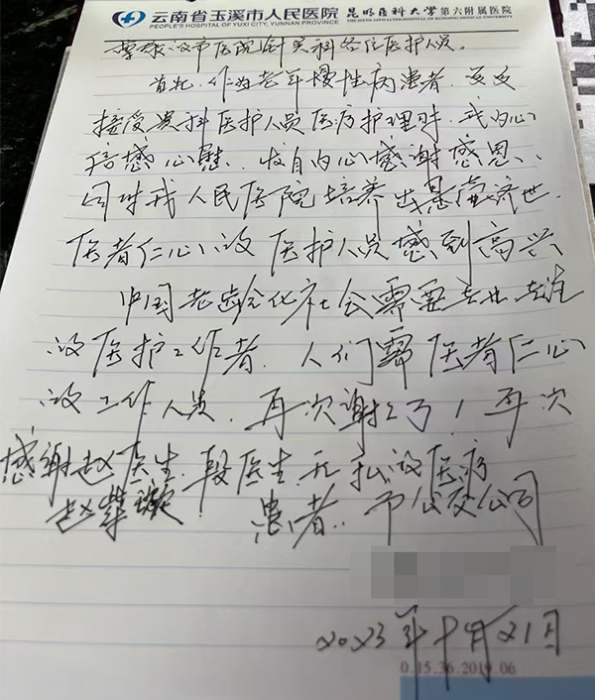 云南省玉溪市人民医院 昆明医科大学第六附属医院
PEOPLE'S HOSPITAL OF YUXI CITY, YUNNAN PROVINCE THE SIXTH AFFILIATED HOSPITAL OF KUNMING MEDICAL UNIVERSITY
市医院针灸科各位医护人员。
首先,作为老年慢性病患者,
接受灸科医护人员医疗护理时,我内心
倍感心慰、发自内心感谢感恩、
同时我人民医院培养出悬壶济世、
医者仁心的医护人员感到高兴
中国老龄化社会需要专业
的医护工作者。人们需医者仁心
的工作人员。再次谢谢了!再次
感谢赵医生、段医生无私的医疗
赵紫璇 患者:市公交公司
2023年十月21日
0.15.36.2019.06